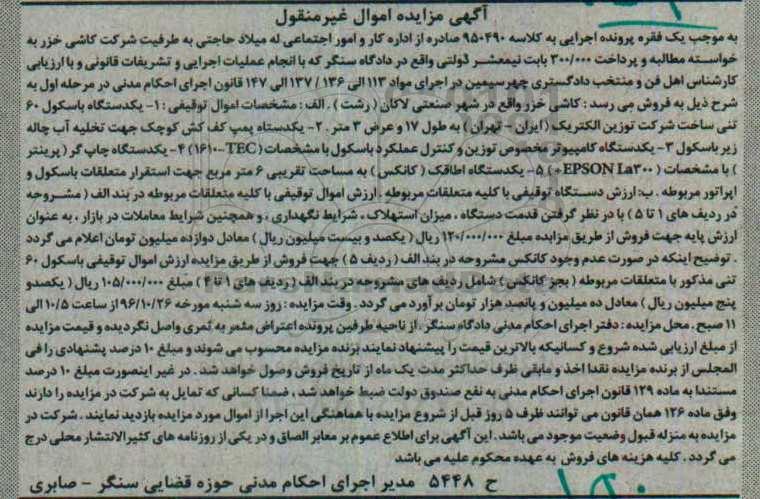 آگهی مزایده اموال غیرمنقول
به موجب یک فقره پرونده اجرایی به کلاسه ۹۵۰۴۹۰ صادره از اداره کار و امور اجتماعی له میلاد حاجتی به طرفیت شرکت کاشی خزر به
خواسته مطالبه و پرداخت ۳۰۰/۰۰۰ بابت نیمعشر دولتی واقع در دادگاه سنگر که با انجام عملیات اجرایی و تشریفات قانونی و با ارزیابی
کارشناس اهل فن و منتخب دادگستری چهرسیمین در اجرای مواد ۱۱۳ الی ۱۳۶ / ۱۳۷ الی ۱۴۷ قانون اجرای احکام مدنی در مرحله اول به
شرح ذیل به فروش می رسد : کاشی خزر واقع در شهر صنعتی لاکان ( رشت ) . الف : مشخصات اموال توقیفی : ۱- یکدستگاه باسکول ۶۰
تنی ساخت شرکت توزین الکتریک (ایران - تهران ) به طول ۱۷ و عرض ۳ متر . ۲- یکدستاه پمپ کف کش کوچک جهت تخلیه آب چاله
زیر باسکول ۳- یکدستگاه کامپیوتر مخصوص توزین و کنترل عملکرد باسکول با مشخصات (TEC-۱۶۱۰) ۴- یکدستگاه چاپ گر ( پرینتر
) با مشخصات ( EPSON La۳۰۰+) ۵- یکدستگاه اطاقک ( کانکس ) به مساحت تقریبی ۶ متر مربع جهت استقرار متعلقات باسکول و
اپراتور مربوطه . ب: ارزش دستگاه توقیفی با کلیه متعلقات مربوطه . ارزش اموال توقیفی با کلیه متعلقات مربوطه در بند الف ( مشروحه
در ردیف های ۱ تا ۵ ) با در نظر گرفتن قدمت دستگاه ، میزان استهلاک ، شرایط نگهداری ، و همچنین شرایط معاملات در بازار ، به عنوان
ارزش پایه جهت فروش از طریق مزایده مبلغ ۱۲۰/۰۰۰/۰۰۰ ریال ( یکصد و بیست میلیون ریال ) معادل دوازده میلیون تومان اعلام می گردد
. توضیح اینکه در صورت عدم وجود کانکس مشروحه در بند الف ( ردیف ۵ ) جهت فروش از طریق مزایده ارزش اموال توقیفی باسکول ۶۰
تنی مذکور با متعلقات مربوطه ( بجز کانکس ) شامل ردیف های مشروحه در بند الف ( ردیف های ۱ تا ۴ ) مبلغ ۱۰۵/۰۰۰/۰۰۰ ریال ( یکصدو
پنج میلیون ریال ) معادل ده میلیون و پانصد هزار تومان برآورد می گردد . وقت مزایده : روز سه شنبه مورخه ۹۶/۱۰/۲۶ از ساعت ۱۰/۵ الی
۱۱ صبح . محل مزایده : دفتر اجرای احکام مدنی دادگاه سنگر . از ناحیه طرفین پرونده اعتراض مثمر به ثمری واصل نگردیده و قیمت مزایده
از مبلغ ارزیابی شده شروع و کسانیکه بالاترین قیمت را پیشنهاد نمایند برنده مزایده محسوب می شوند و مبلغ ۱۰ درصد پشنهادی را فی
المجلس از برنده مزایده نقدا اخذ و مابقی ظرف حداکثر مدت یک ماه از تاریخ فروش وصول خواهد شد . در غیر اینصورت مبلغ ۱۰ درصد
مستندا به ماده ۱۲۹ قانون اجرای احکام مدنی به نفع صندوق دولت ضبط خواهد شد ، ضمنا کسانی که تمایل به شرکت در مزایده را دارند
وفق ماده ۱۲۶ همان قانون می توانند ظرف ۵ روز قبل از شروع مزایده با هماهنگی این اجرا از اموال مورد مزایده بازدید نمایند . شرکت در
مزایده به منزله قبول وضعیت موجود می باشد . این آگهی برای اطلاع عموم بر معابر الصاق و در یکی از روزنامه های کثیرالانتشار محلی درج
می گردد . کلیه هزینه های فروش به عهده محکوم علیه می باشد
ح ۵۴۴۸ مدیر اجرای احکام مدنی حوزه قضایی سنگر - صابری